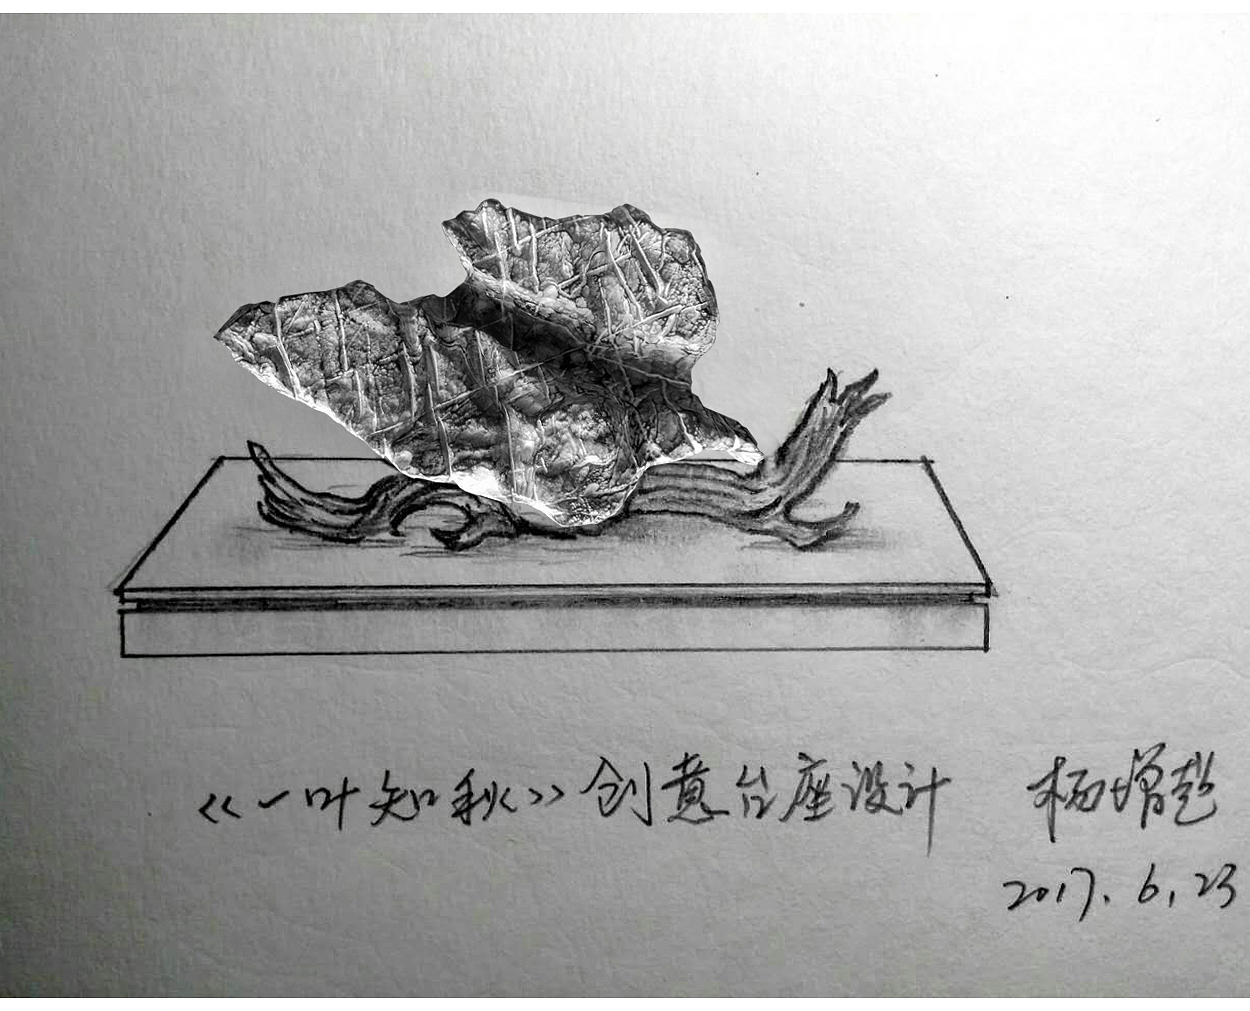 《一叶知秋》创意台座设计 杨增超
2017.6.23